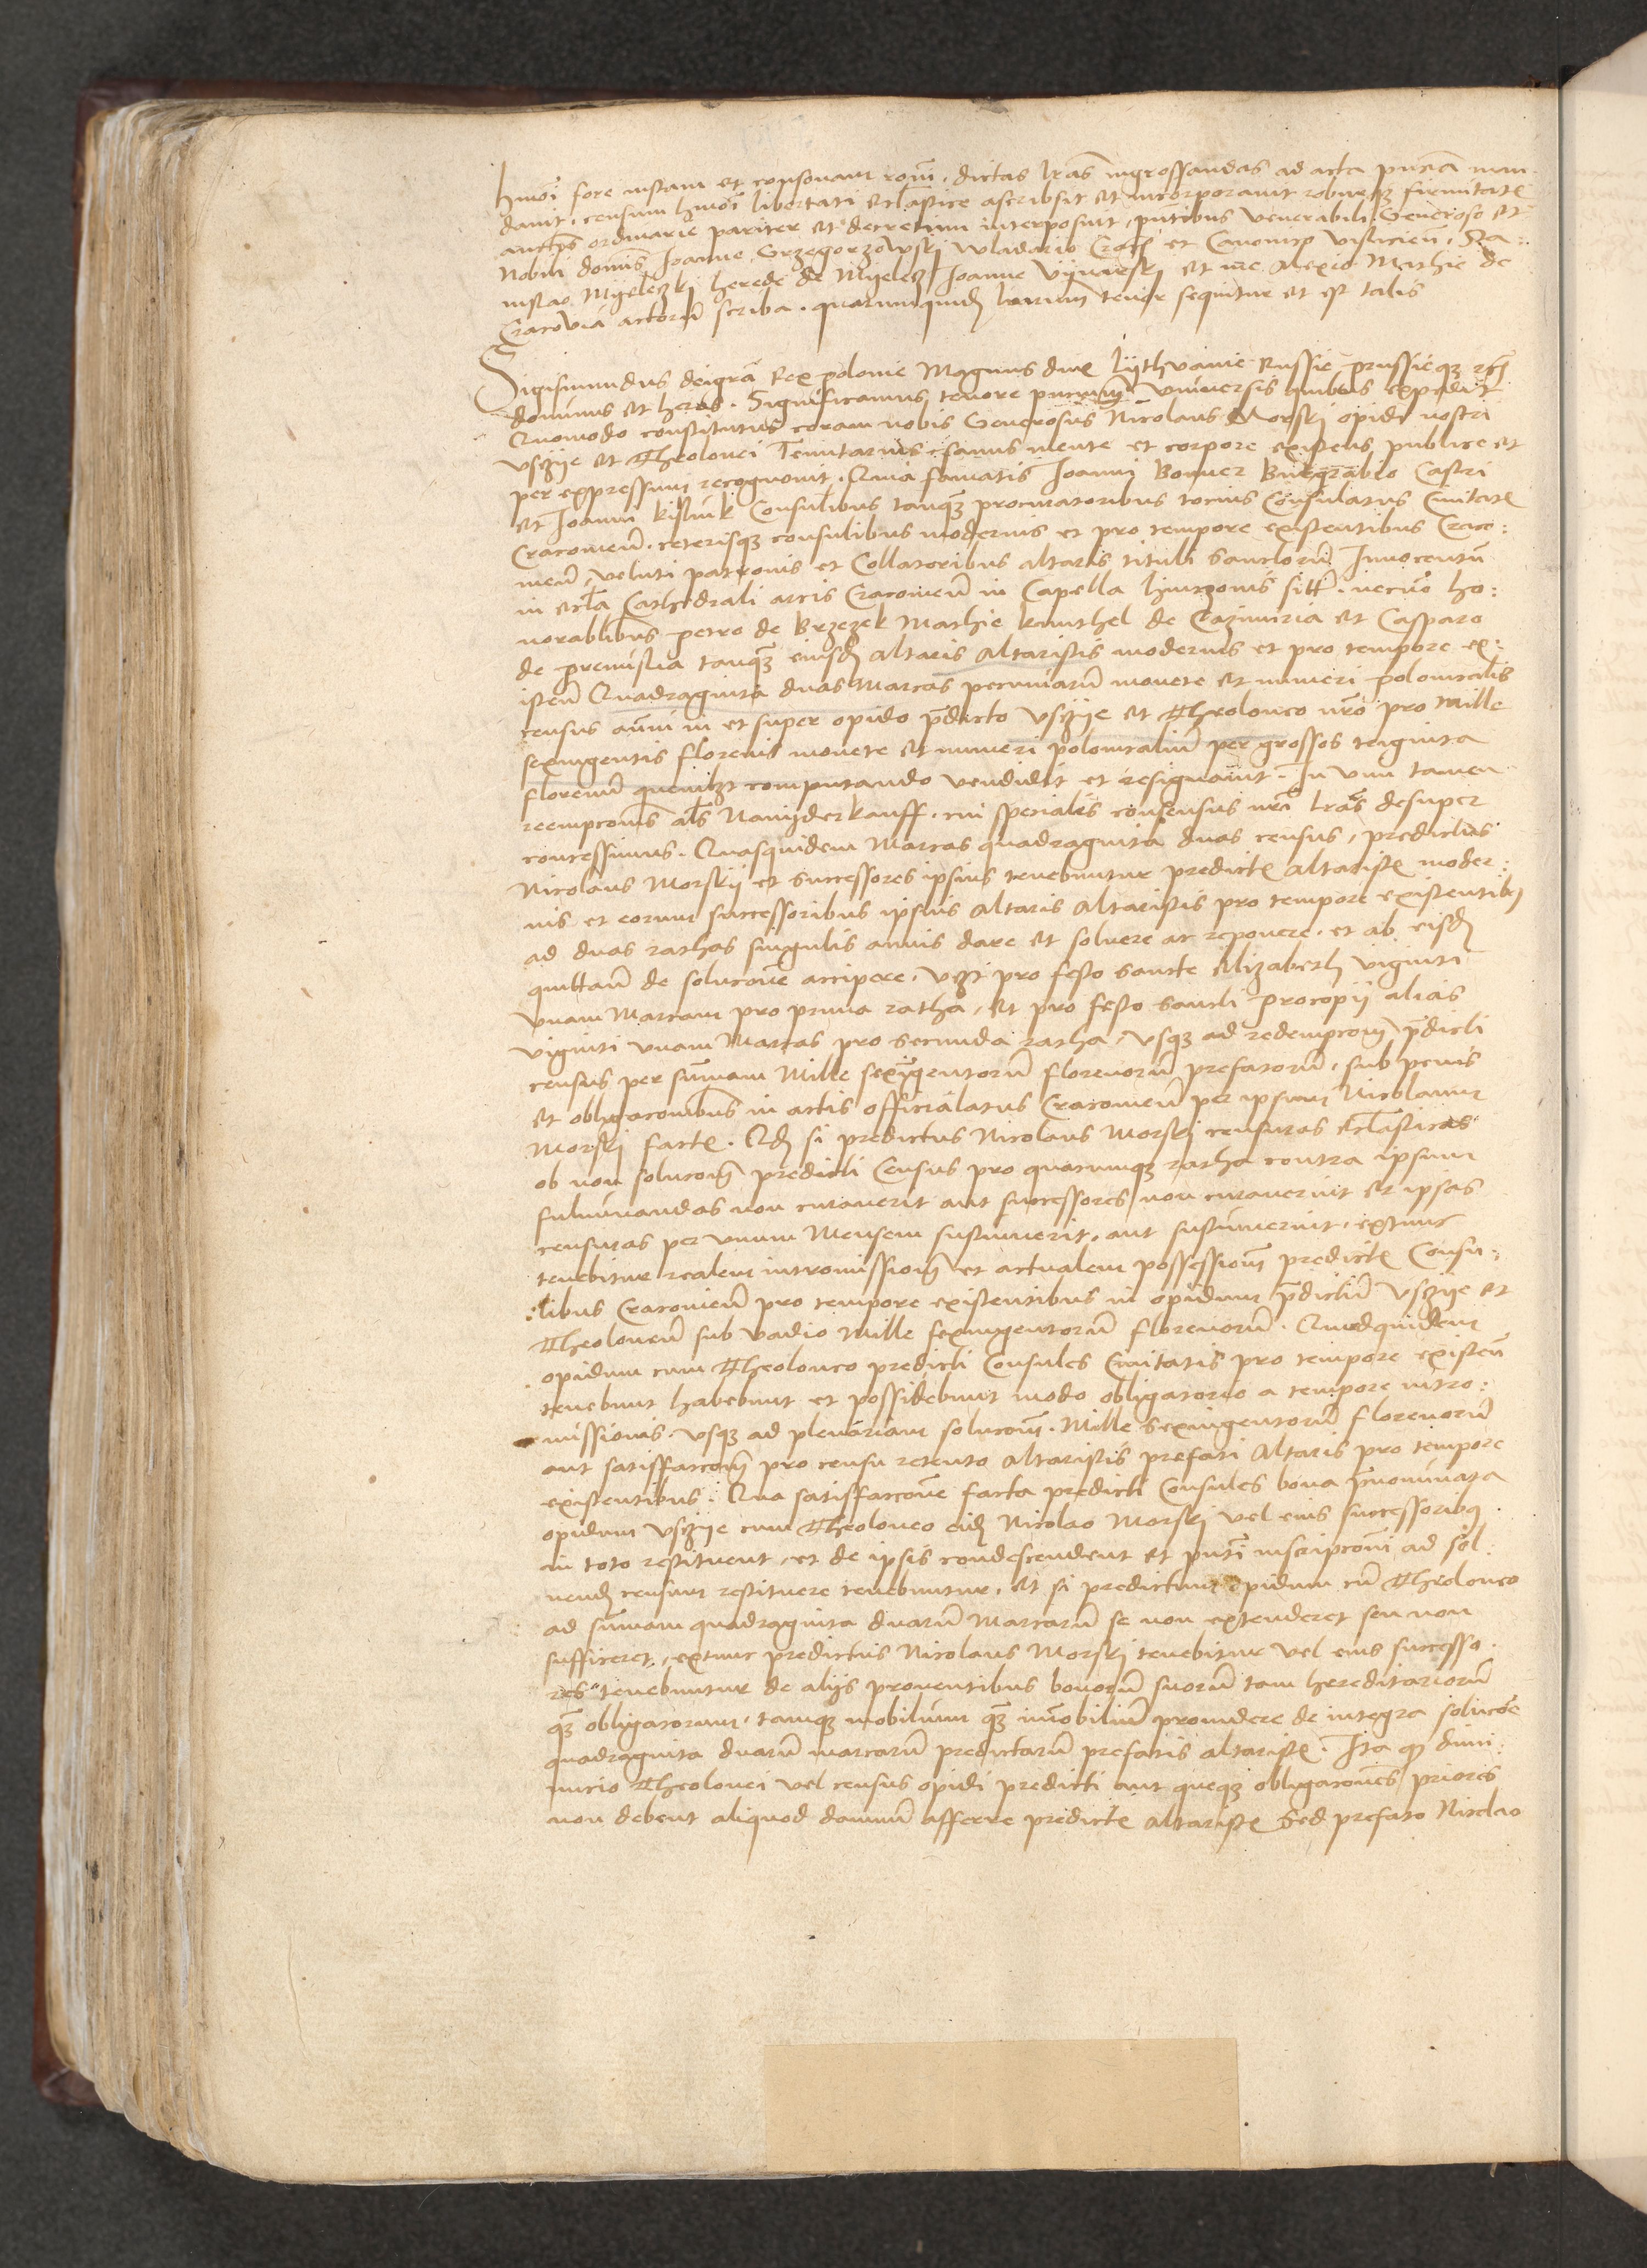 hmoi fore iustam et consonam roni. dictas lras ingrossandas ad acta pncia man
davit. censum hmoi libertati ecclastice ascribsit et incorporavit roburqz firmitatis
auctis ordinarie pariter et decretum interposuit, pntibus venerabili Generoso et
Nobili domis Joanne Grzegorzowskj vladario Craco et Canonico visliciens, Sta:
nislao Myeleczkj herede de Myelecz Joanne Vynarskj et me Alexio Mathie de
Cracovia actoru scriba. quarumquid lrarum tenor sequitur et est talis
Sigismundus dei gra Rex polonie Magnus dux Lythvanie Russie prussieqz etc
dominus et heres. Significamus tenore pncium Universis quibus expedit
Quomodo constitutus coram nobis Generosus Nicolaus Morskj opidi nostri
Vsczye et Theolonei Tenutarius sanus mente et corpore existens publice et
per expressum recognovit. Quia famatis Joanni Bonner Burgrabio Castri
et Joanni kislink Consulibus tanqz procuratoribus tocius Consulatus Civitatis
Cracovien. ceterisqz consulibus modernis et pro tempore existentibus Craco:
vien, veluti patronis et Collatoribus altaris tituli Sanctoru Innocentu
in eccla Cathedrali arcis Cracovien in Capella hinczonis sitt. necno ho:
norablibus petro de Brzezek Mathie kmithel de Cazimiria et Casparo
de premislia tanqz eiusd altaris Altaristis modernis et pro tempore ex:
isten Quadraginta duas Marcas pecuniaru monete et numeri polonicalis
census annui in et super opido pdicto Vsczye et Theoloneo nro pro Mille
sexingentis florenis monete et numeri polonicaliu per grossos triginta
florenu quemlibet computando vendidit et resignavit. In vim tamen
reempcionis als Nawyderkauff. cui specialis consensus nri lras desuper
concessimus. Quasquidem Marcas quadraginta duas census, predictus
Nicolaus Morskij et successores ipsius tenebuntur predictis altaristis moder:
nis et eorum successoribus ipsius altaris Altaristis pro tempore existentibus
ad duas rathas singulis annis dare et solvere ac reponere. et ab eisd
quittam de solucone accipere. vz pro festo Sancte Elizabeth viginti
vnam Marcam pro prima ratha, et pro festo Sancti procopij alias
viginti vnam Marcas pro secunda ratha, vsqz ad redempcone pdicti
census per summam Mille sexingentoru florenoru prefatoru, sub penis
et obligaconibus in actis officialatus Cracovien per ipsum Nicolaum
Morskj factis. Qd si predictus Nicolaus Morskj censuras ecclasticas
ob non solucone predicti Census pro quacunqz ratha contra ipsum
fulminandas non curaverit aut successores non curaverint et ipsas
censuras per vnum Mensem sustinuerit, aut sustinuerint, extunc
tenebitur realem intromissione et actualem possessione predictis Consu:
libus Cracovien pro tempore existentibus in opidum pdictu Vsczye et
Theoloneu sub vadio Mille sexingentoru florenoru. Quodquidem
opidum cum Theoloneo predicti Consules Civitatis pro tempore existen
tenebunt habebunt et possidebunt modo obligatorio a tempore intro:
missionis. vsqz ad plenariam solucone. Mille sexingentoru florenoru
aut satisfaccone pro censu retento Altaristis prefati Altaris pro tempore
existentibus. Qua satisfaccone facta predicti Consules bona prenominata
opidum Vsczye cum Theoloneo eid Nicolao Morskj vel eius successoribus
in toto restituent, et de ipsis condescendent et pnti inscripcioni ad sol:
vend censum restituere tenebuntur. et si predictum opidum cu Theoloneo
ad summam quadraginta duaru Marcaru se non extenderet seu non
sufficeret, extunc predictus Nicolaus Morskj tenebitur vel eius successo:
res tenebuntur de alijs proventibus bonoru suoru tam hereditarioru
qz obligatorum. tamqz mobilium qz immobiliu providere de integra solucoe
quadraginta duaru marcaru predictaru prefatis altaristis. Ita qp dimi:
nucio Theolonei vel census opidi predicti aut queqz obligacones priores
non debent aliquod damnu afferre predictis altaristis Sed prefato Nicolao